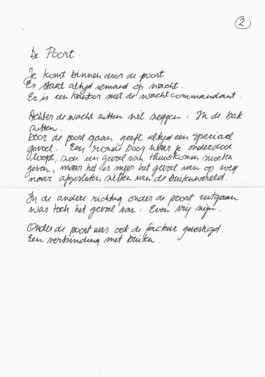 2
De Poort.
Je komt binnen door de poort
Er staat altijd iemand op wacht.
Er is een kantoor met de wachtcommandant.
Achter de wacht zitten wil zeggen: In de bak
zitten.
Door de poort gaan geeft altijd een speciaal
gevoel. Een ronde boog waar je onderdoor
loopt, zou een gevoel van thuiskomen moeten
geven, maar het is meer het gevoel van op weg
naar afgesloten zitten van de buitenwereld.
In de andere richting onder de poort uitgaan
was toch het gevoel van: Even vrij zijn.
Onder de poort was ook de facteur gevestigd.
Een verbinding met buiten.